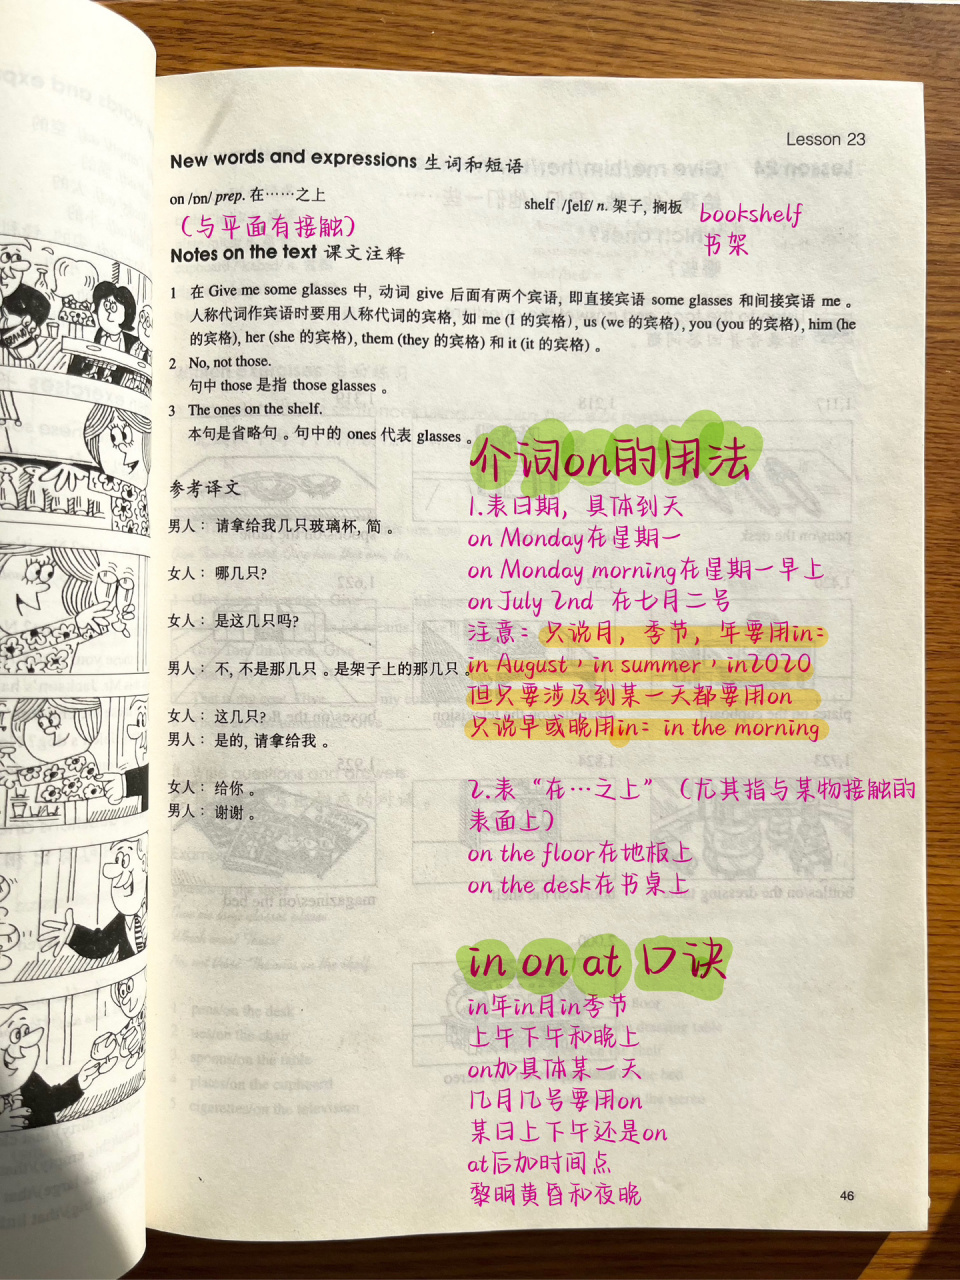 Lesson 23
New words and expressions 生词和短语
on /ɒn/ prep. 在……之上
shelf /ʃelf/ n. 架子, 搁板
bookshelf
书架
(与平面有接触)
Notes on the text 课文注释
1 在 Give me some glasses 中, 动词 give 后面有两个宾语, 即直接宾语 some glasses 和间接宾语 me 。
人称代词作宾语时要用人称代词的宾格, 如 me (I 的宾格) , us (we 的宾格) , you (you 的宾格) , him (he
的宾格), her (she 的宾格) , them (they 的宾格) 和 it (it 的宾格) 。
2 No, not those.
句中 those 是指 those glasses 。
3 The ones on the shelf.
本句是省略句 。句中的 ones 代表 glasses 。
参考译文
男人： 请拿给我几只玻璃杯, 简 。
女人： 哪几只?
女人： 是这几只吗?
男人： 不, 不是那几只 。是架子上的那几只 。
女人： 这几只?
男人： 是的, 请拿给我 。
女人： 给你 。
男人： 谢谢 。
介词on的用法
1.表日期，具体到天
on Monday在星期一
on Monday morning在星期一早上
on July 2nd 在七月二号
注意：只说月，季节，年要用in：
in August，in summer，in2020
但只要涉及到某一天都要用on
只说早或晚用in：in the morning
2.表“在…之上”（尤其指与某物接触的
表面上）
on the floor在地板上
on the desk在书桌上
in on at 口诀
in年in月in季节
上午下午和晚上
on加具体某一天
几月几号要用on
某日上下午还是on
at后加时间点
黎明黄昏和夜晚
46